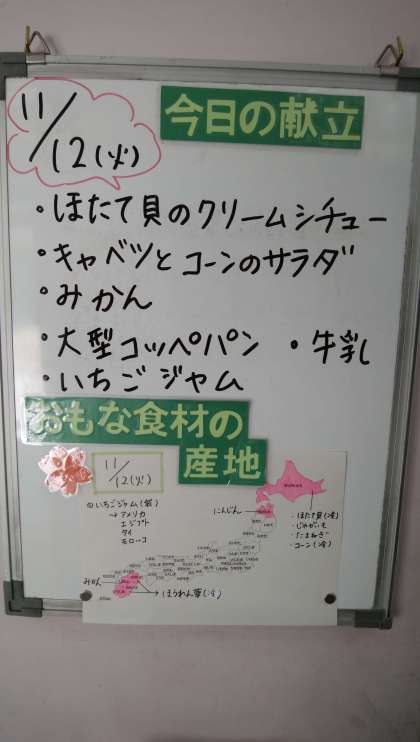 11/12(火)
今日の献立
・ほたて貝のクリームシチュー
・キャベツとコーンのサラダ
・みかん
・大型コッペパン ・牛乳
・いちごジャム
おもな食材の
産地
11/12(火)
いちごジャム(袋)
→アメリカ
エジプト
タイ
モロッコ
にんじん
・ほたて貝(冷)
・じゃがいも
・たまねぎ
・コーン(冷)
みかん
ほうれん草(冷)